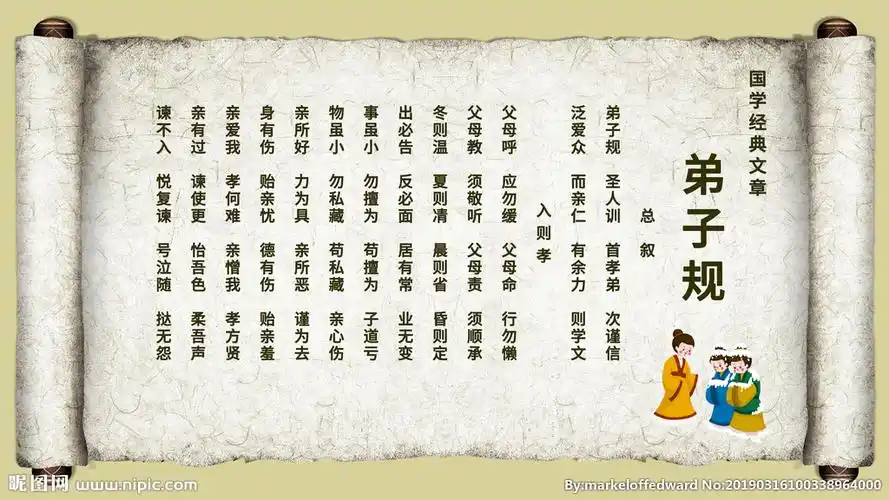 国学经典文章
弟子规
总叙
弟子规 圣人训 首孝弟 次谨信
泛爱众 而亲仁 有余力 则学文
入则孝
父母呼 应勿缓 父母命 行勿懒
父母教 须敬听 父母责 须顺承
冬则温 夏则凊 晨则省 昏则定
出必告 反必面 居有常 业无变
事虽小 勿擅为 苟擅为 子道亏
物虽小 勿私藏 苟私藏 亲心伤
亲所好 力为具 亲所恶 谨为去
身有伤 贻亲忧 德有伤 贻亲羞
亲爱我 孝何难 亲憎我 孝方贤
亲有过 谏使更 怡吾色 柔吾声
谏不入 悦复谏 号泣随 挞无怨
昵图网 www.nipic.com
By:markeloffedward No:20190316100338964000